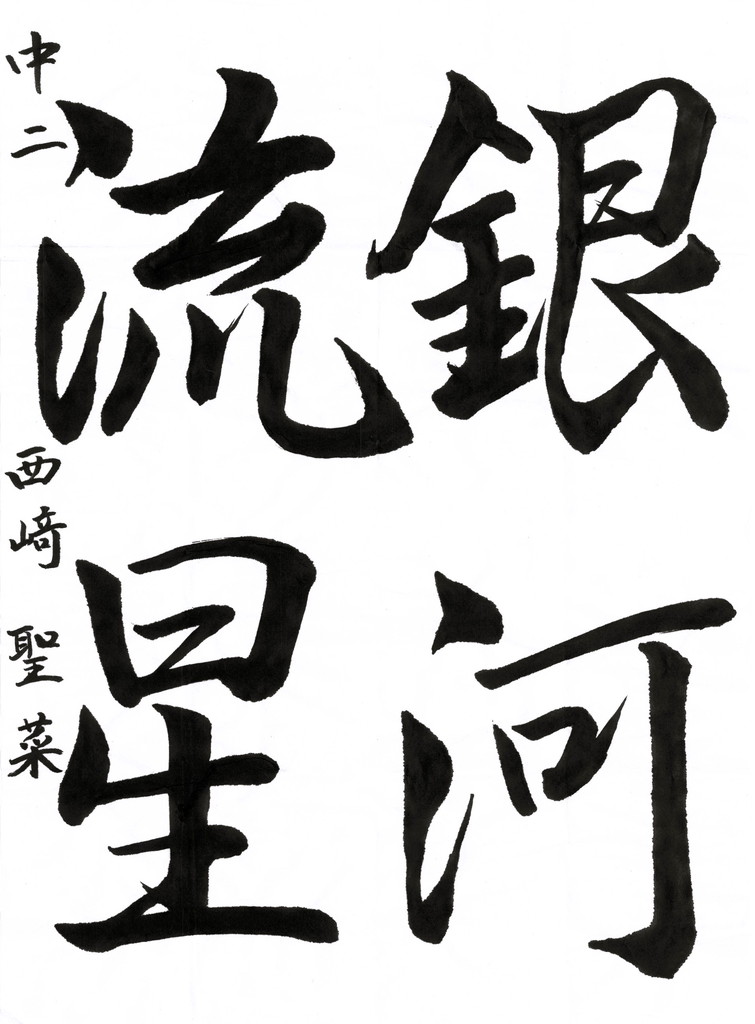 銀河
流星
中二 西﨑 聖菜